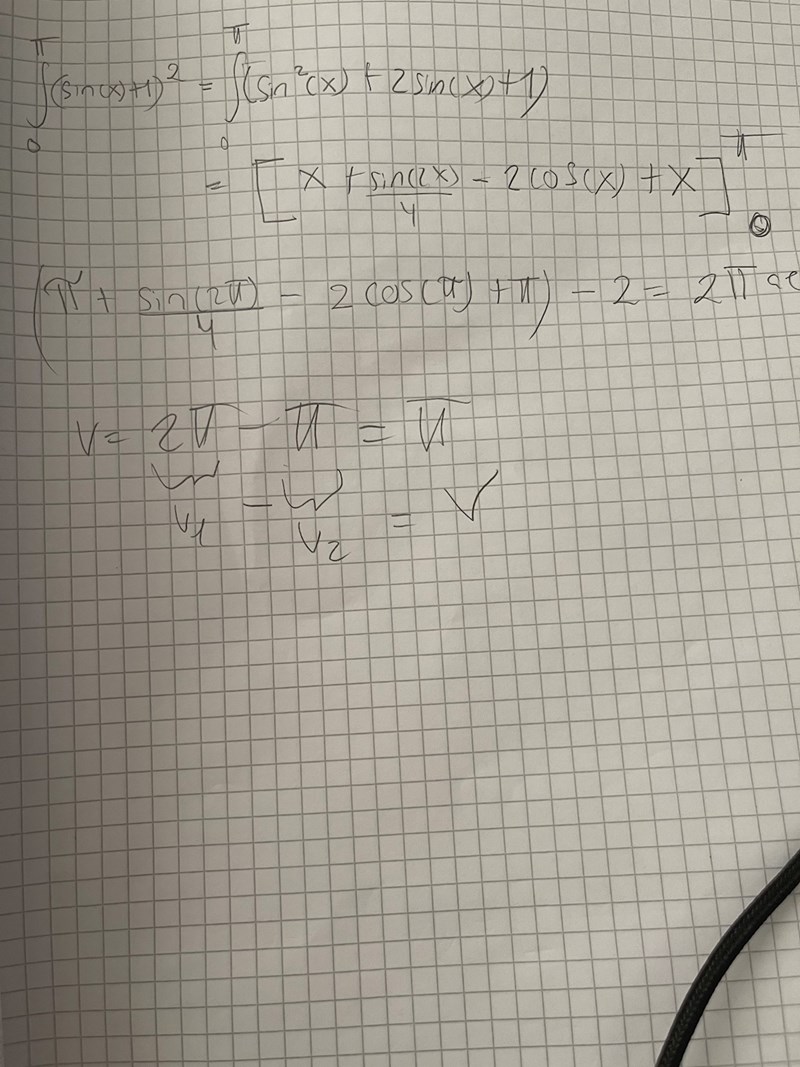 ∫₀^π (sin(x)+1)² = ∫₀^π (sin²(x) + 2sin(x)+1)
= [x + sin(2x)/4 - 2cos(x) + x]₀^π
(π + sin(2π)/4 - 2cos(π) + π) - 2 = 2π ae
V = 2π - π = π
V₁ - V₂ = V